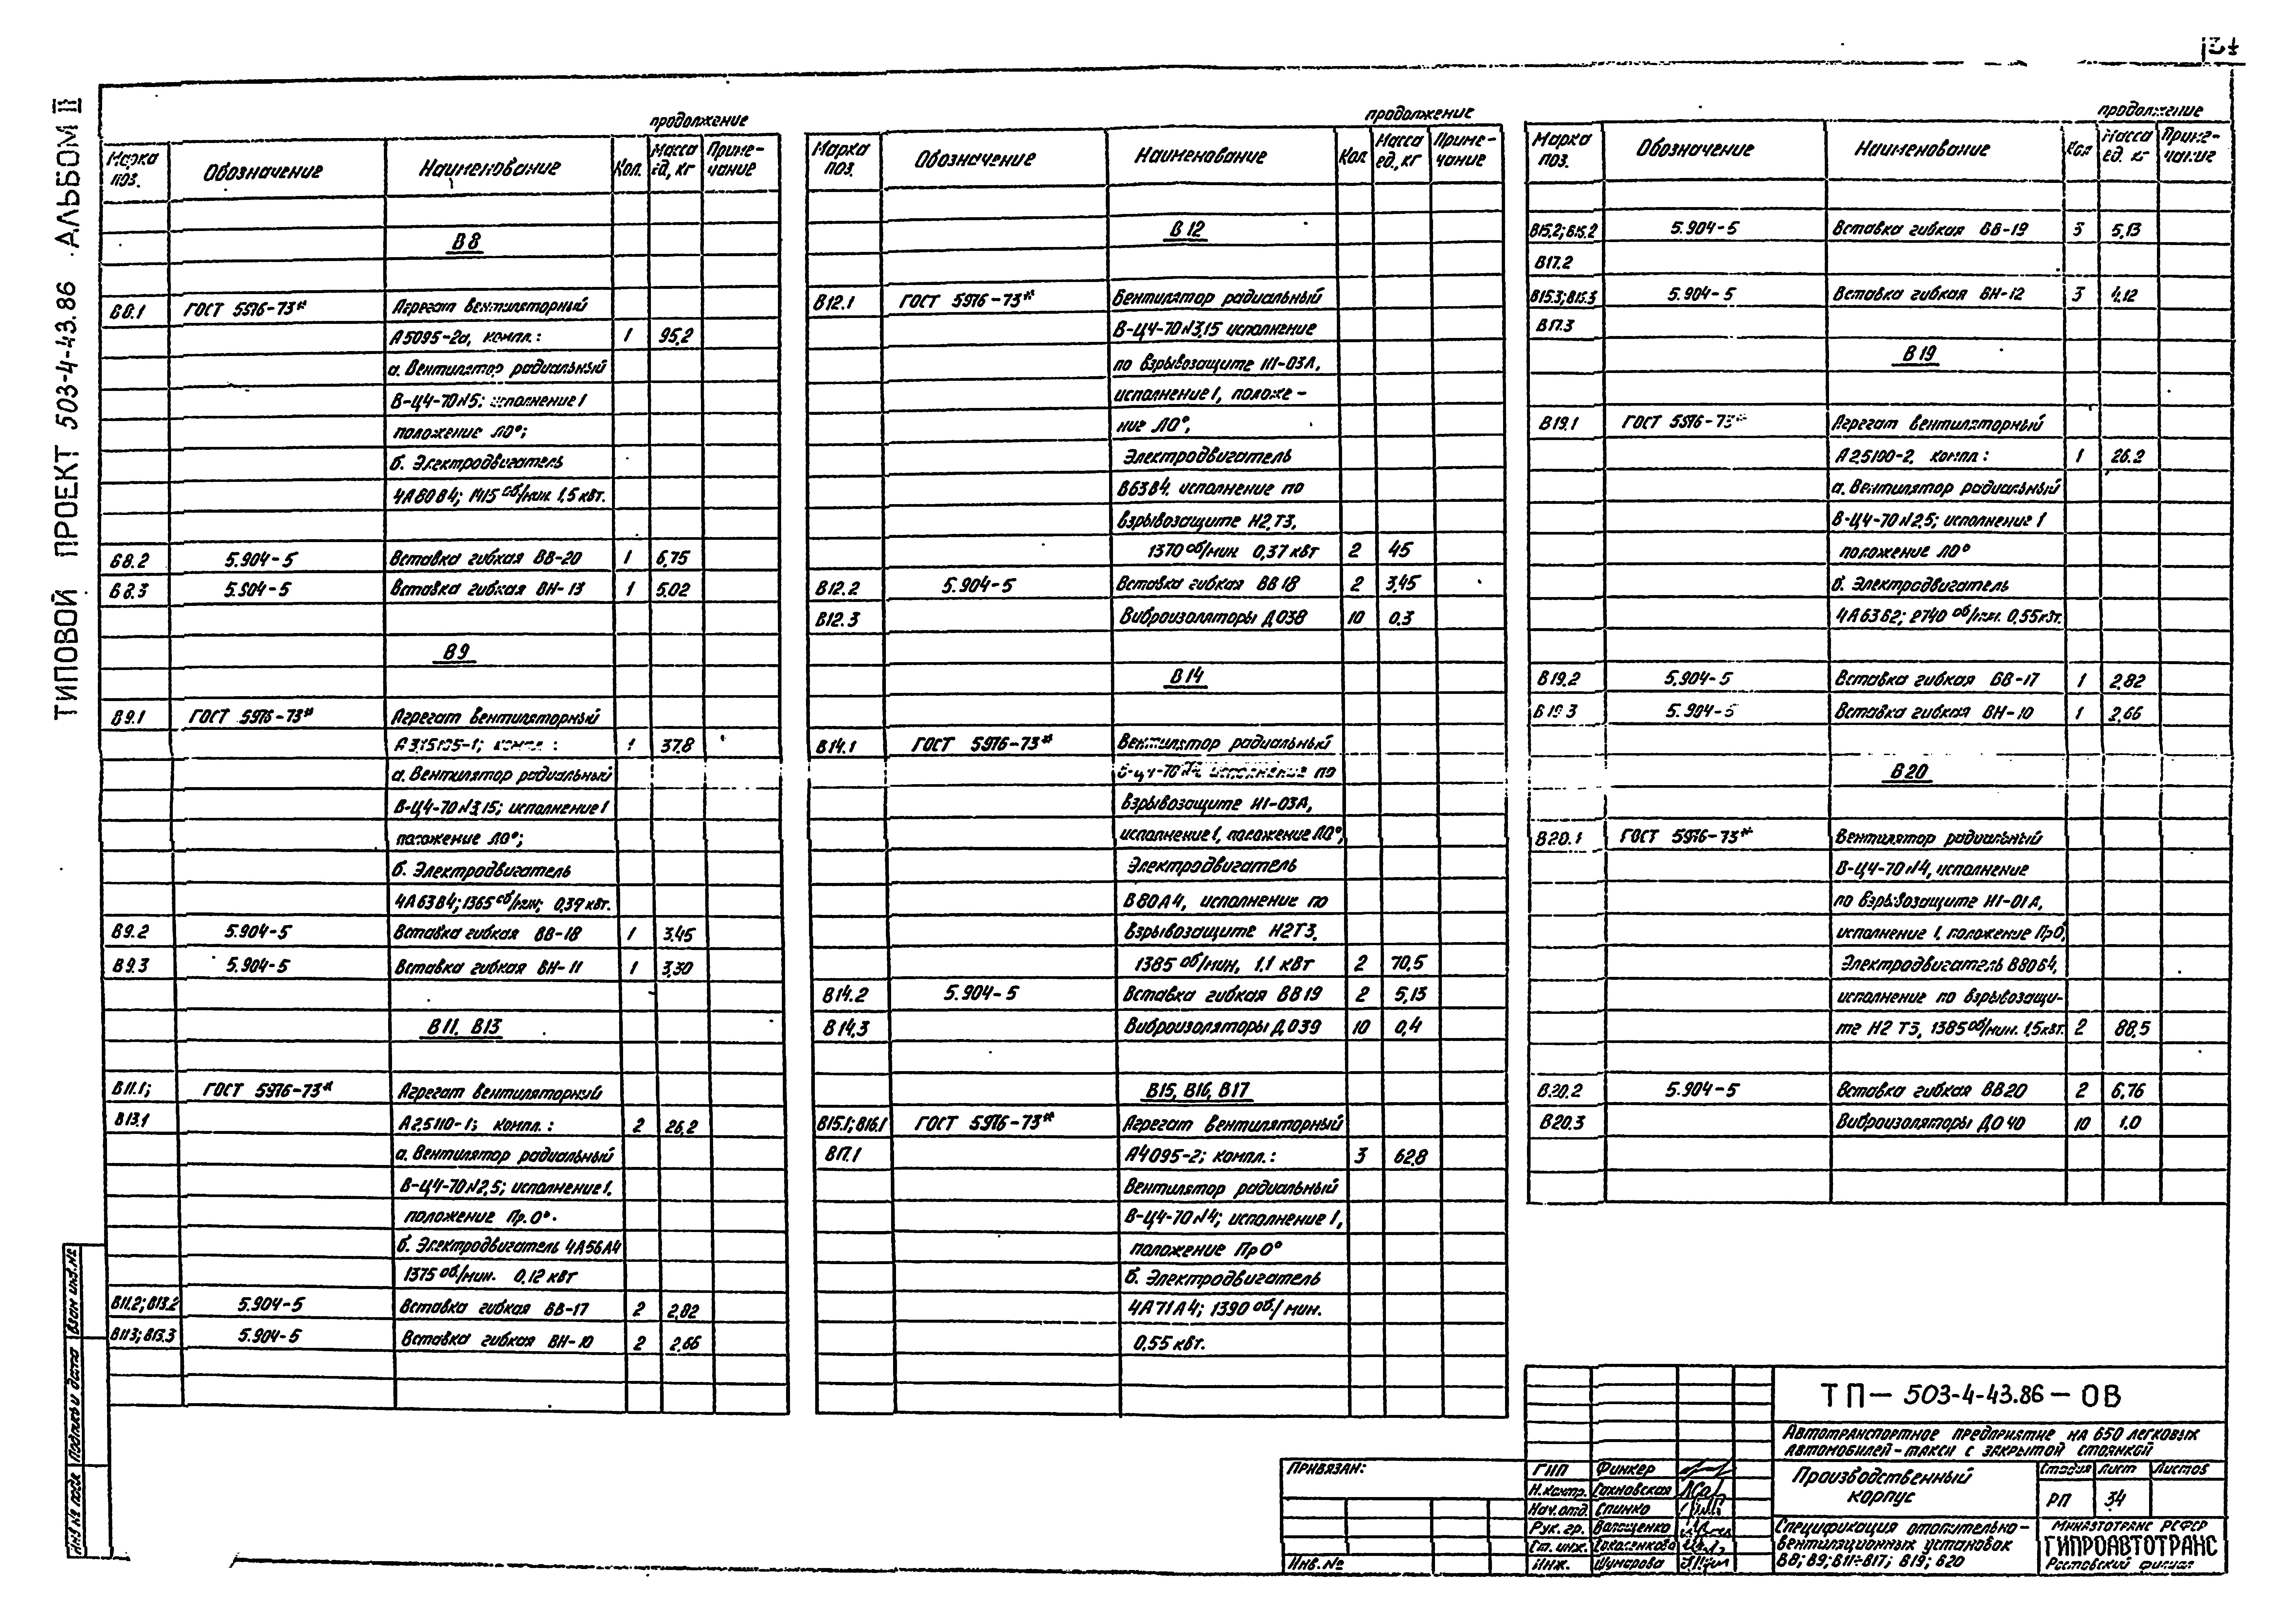 ТИПОВОЙ ПРОЕКТ 503-4-43.86 АЛЬБОМ II
34
продолжение
Марка поз. Обозначение Наименование Кол. Масса ед, кг Приме-чание
В8
В8.1 ГОСТ 5976-73* Агрегат вентиляторный
А5095-2а, компл.: 1 95,2
а. Вентилятор радиальный
В-Ц4-70№5; исполнение 1
положение Л0°;
б. Электродвигатель
4А80В4; 1415 об/мин 1,5 квт.
В8.2 5.904-5 Вставка гибкая ВВ-20 1 6,75
В8.3 5.904-5 Вставка гибкая ВН-13 1 5,02
В9
В9.1 ГОСТ 5976-73* Агрегат вентиляторный
А3,15105-1; компл.: 1 37,8
а. Вентилятор радиальный
В-Ц4-70№3,15; исполнение 1
положение Л0°;
б. Электродвигатель
4А63В4; 1365 об/мин; 0,39 квт.
В9.2 5.904-5 Вставка гибкая ВВ-18 1 3,45
В9.3 5.904-5 Вставка гибкая ВН-11 1 3,30
В11, В13
В11.1; ГОСТ 5976-73* Агрегат вентиляторный
В13.1 А2,5110-1; компл.: 2 26,2
а. Вентилятор радиальный
В-Ц4-70№2,5; исполнение 1.
положение Пр.0°.
б. Электродвигатель 4А56А4
1375 об/мин. 0,12 квт
В11.2; В13.2 5.904-5 Вставка гибкая ВВ-17 2 2,82
В11.3; В13.3 5.904-5 Вставка гибкая ВН-10 2 2,66
продолжение
Марка поз. Обозначение Наименование Кол Масса ед., кг Приме-чание
В12
В12.1 ГОСТ 5976-73* Вентилятор радиальный
В-Ц4-70№3,15 исполнение
по взрывозащите Н1-03А,
исполнение 1, положе-
ние Л0°,
Электродвигатель
В63В4. исполнение по
взрывозащите Н2.Т3,
1370 об/мин 0,37 квт 2 45
В12.2 5.904-5 Вставка гибкая ВВ18 2 3,45
В12.3 Виброизоляторы Д038 10 0.3
В14
В14.1 ГОСТ 5976-73* Вентилятор радиальный
В-Ц4-70№4 исполнение по
взрывозащите Н1-03А,
исполнение 1, положение Л0°,
Электродвигатель
В80А4, исполнение по
взрывозащите Н2Т3.
1385 об/мин, 1.1 квт 2 70,5
В14.2 5.904-5 Вставка гибкая ВВ19 2 5,13
В14.3 Виброизоляторы Д039 10 0,4
В15, В16, В17
В15.1; В16.1 ГОСТ 5976-73* Агрегат вентиляторный
В17.1 А4095-2; компл.: 3 62,8
Вентилятор радиальный
В-Ц4-70№4; исполнение 1,
положение Пр0°
б. Электродвигатель
4А71А4; 1390 об/мин.
0,55 квт.
продолжение
Марка поз. Обозначение Наименование Кол Масса ед. кг Приме-чание
В15.2; В16.2 5.904-5 Вставка гибкая ВВ-19 3 5,13
В17.2
В15.3; В16.3 5.904-5 Вставка гибкая ВН-12 3 4,12
В17.3
В19
В19.1 ГОСТ 5976-73* Агрегат вентиляторный
А2,5100-2, компл: 1 26.2
а. Вентилятор радиальный
В-Ц4-70№2,5; исполнение 1
положение Л0°
б. Электродвигатель
4А63В2; 2740 об/мин. 0,55квт.
В19.2 5.904-5 Вставка гибкая ВВ-17 1 2,82
В19.3 5.904-5 Вставка гибкая ВН-10 1 2,66
В20
В20.1 ГОСТ 5976-73* Вентилятор радиальный
В-Ц4-70№4, исполнение
по взрывозащите Н1-01А,
исполнение 1, положение Пр0,
Электродвигатель В80В4,
исполнение по взрывозащи-
те Н2 Т3, 1385 об/мин. 1,5квт. 2 88,5
В20.2 5.904-5 Вставка гибкая ВВ20 2 6,76
В20.3 Виброизоляторы Д040 10 1.0
Инв № подл Подпись и дата Взам инв.№
ПРИВЯЗАН:
Инв.№
ГИП Финкер
Н.контр. Сахновская
Нач.отд. Спинко
Рук. гр. Волощенко
Ст. инж.
Инж. Шумарова
ТП-503-4-43.86-ОВ
Автотранспортное предприятие на 650 легковых
автомобилей-такси с закрытой стоянкой
Производственный
корпус
Стадия Лист Листов
РП 34
Спецификация отопительно-
вентиляционных установок
В8; В9; В11÷В17; В19; В20
Минавтотранс РСФСР
ГИПРОАВТОТРАНС
Ростовский филиал